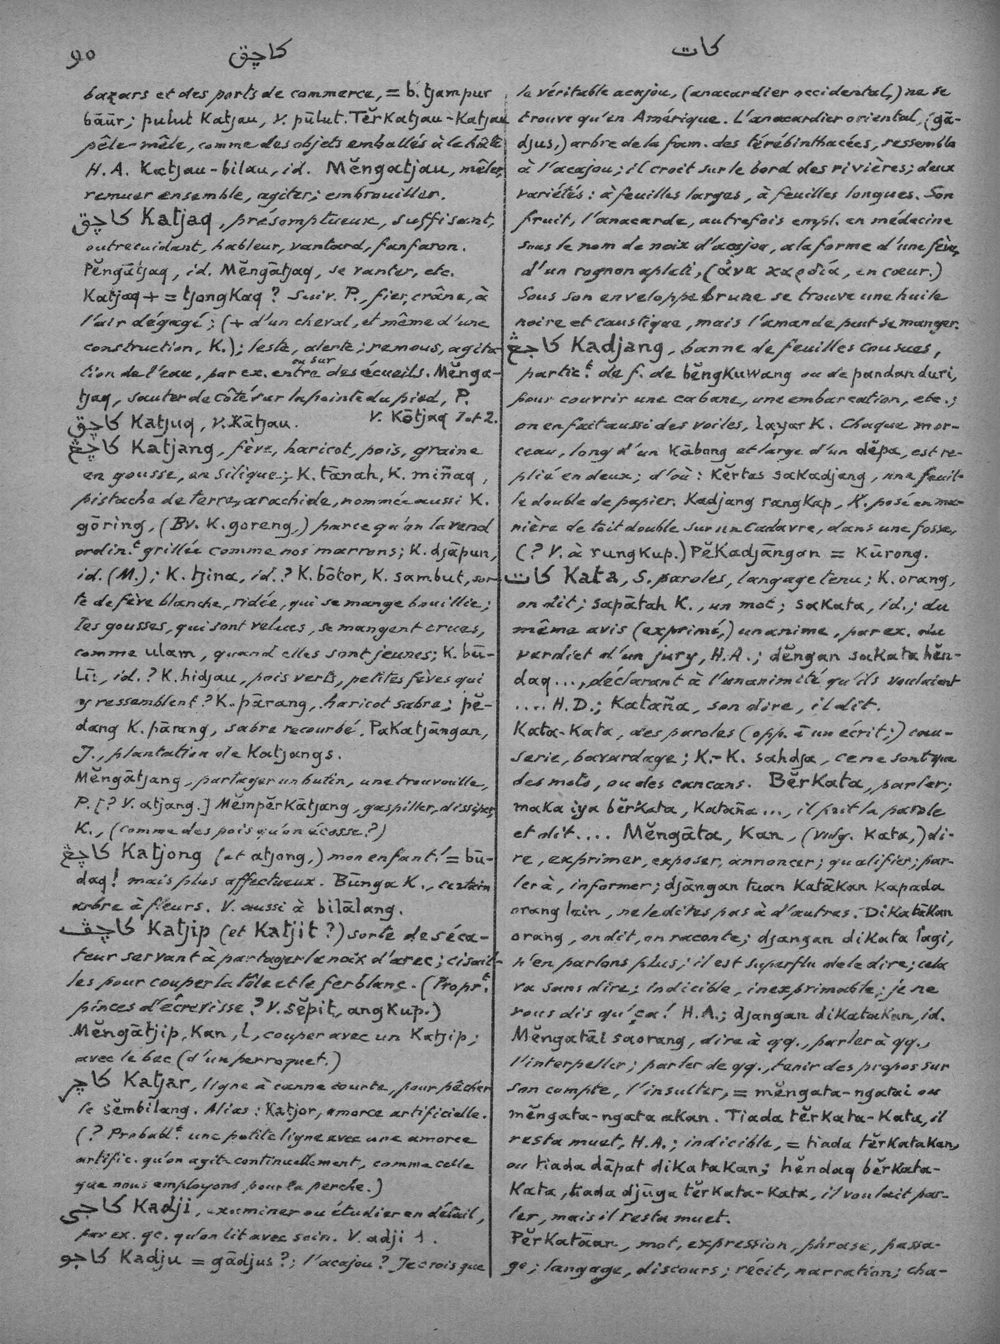 90 كاچق كات
bazars et des ports de commerce, = b. tjampur
bāūr; pulut Katjau, v. pūlut. Tĕrkatjau-Katjau
pêle-mêle, comme des objets emballés à la hâte
H.A. Katjau-bilau, id. Mĕngatjau, mêler,
remuer ensemble, agiter; embrouiller.
كاچق Katjaq, présomptueux, suffisant,
outrecuidant, hableur, vantard, fanfaron.
Pĕngātjaq, id. Mĕngātjaq, se vanter, etc.
Katjaq + = tjongkaq? Suiv. P., fier, crâne, à
l'air dégagé; (+ d'un cheval, et même d'une
construction, K.); leste, alerte; remous, agita-
tion de l'eau, par ex. entre ou sur des écueils. Mĕnga-
tjaq, sauter de côté sur la pointe du pied, P.
V. Kōtjaq 1 et 2.
كاچق Katjuq, v. Kātjau.
كاچڠ Katjang, fève, haricot, pois, graine
en gousse, en silique; K. tānah, K. miñaq,
pistache de terre, arachide, nommée aussi K.
gōring, (Bv. K. goreng,) parce qu'on la vend
ordin.t grillée comme nos marrons; K. djāpun,
id. (M.); K. tjina, id.? K. bōtor, K. sambut, sor-
te de fève blanche, ridée, qui se mange bouillie;
les gousses, qui sont velues, se mangent crues,
comme ulam, quand elles sont jeunes; K. bū-
lū, id.? K. hidjau, pois verts, petites fèves qui
y ressemblent? K. pārang, haricot sabre; pĕ-
dang K. pārang, sabre recourbé. Pakatjāngan,
J., plantation de Katjangs.
Mĕngātjang, partager un butin, une trouvaille,
P. [? V. atjang.] Mĕmpĕrkātjang, gaspiller, dissiper,
K., (comme des pois qu'on écosse?)
كاچڠ Katjong (et atjong,) mon enfant! = bū-
daq! mais plus affectueux. Būnga K., certain
arbre à fleurs. V. aussi à bilālang.
كاچڤ Katjip (et Katjit?) sorte de séca-
teur servant à partager le noix d'arec; cisail-
les pour couper la tôle et le fer blanc. (Propr.t
pinces d'écrevisse? V. sĕpit, angkup.)
Mĕngātjip, Kan, l, couper avec un Katjip;
avec le bec (d'un perroquet.)
كاچر Katjar, ligne à canne courte, pour pêcher
le sĕmbilang. Alias: Katjor, amorce artificielle.
(? Probabl.t une petite ligne avec une amorce
artific. qu'on agite continuellement, comme celle
que nous employons pour la perche.)
كاجي Kadji, examiner ou étudier en détail,
par ex. qc. qu'on lit avec soin. V. adji 1.
كاجو Kadju = gādjus?; l'acajou? Je crois que
le véritable acajou, (anacardier occidental,) ne se
trouve qu'en Amérique. L'anacardier oriental, (gā-
djus,) arbre de la fam. des térébinthacées, ressemble
à l'acajou; il croit sur le bord des rivières; deux
variétés: à feuilles larges, à feuilles longues. Son
fruit, l'anacarde, autrefois empl. en médecine
sous le nom de noix d'acajou, a la forme d'une fève,
d'un rognon aplati, (ἀνα καρδία, en cœur.)
Sous son enveloppe brune se trouve une huile
noire et caustique, mais l'amande peut se manger.
كاجڠ Kadjang, banne de feuilles cousues,
partic.t de f. de bĕngkuwang ou de pandan duri,
pour couvrir une cabane, une embarcation, etc.;
on en fait aussi des voiles, layar K. Chaque mor-
ceau, long d'un Kābang et large d'un dĕpa, est re-
plié en deux; d'où: Kĕrtas sakadjang, une feuil-
le double de papier. Kadjang rangkap, K. posé en ma-
nière de toit double sur un Cadavre, dans une fosse,
(? V. à rungkup.) Pĕkadjāngan = Kūrong.
كات Kata, S. paroles, langage tenu; K. orang,
on dit; sapātah K., un mot; sakata, id.; du
même avis (exprimé,) unanime, par ex. du
verdict d'un jury, H.A.; dĕngan sakata hĕn-
daq ..., déclarant à l'unanimité qu'ils voulaient
.... H.D.; Katāña, son dire, il dit.
Kata-Kata, des paroles (opp. à un écrit;) cau-
serie, bavardage; K.-K. sahdja, ce ne sont que
des mots, ou des cancans. Bĕrkata, parler;
maka iya bĕrkata, Katāña ..., il prit la parole
et dit .... Mĕngāta, Kan, (vulg. Kata,) di-
re, exprimer, exposer, annoncer; qualifier; par-
ler à, informer; djāngan tuan Katākan Kapada
orang lain, ne le dites pas à d'autres. Dikatākan
orang, on dit, on raconte; djangan dikata lagi,
n'en parlons plus; il est superflu de le dire; cela
va sans dire; indicible, inexprimable; je ne
vous dis qu'ça! H.A.; djangan dikatakan, id.
Mĕngatāi saorang, dire à qq., parler à qq.,
l'interpeller; parler de qq., tenir des propos sur
son compte, l'insulter, = mĕngata-ngatai ou
mĕngata-ngata akan. Tiada tĕrkata-Kata, il
resta muet, H.A.; indicible, = tiada tĕrkatakan,
ou tiada dāpat dikatakan; hĕndaq bĕrkata-
Kata, tiada djūga tĕrkata-Kata, il voulait par-
ler, mais il resta muet.
Pĕrkatāan, mot, expression, phrase, passa-
ge; langage, discours; récit, narration; cha-